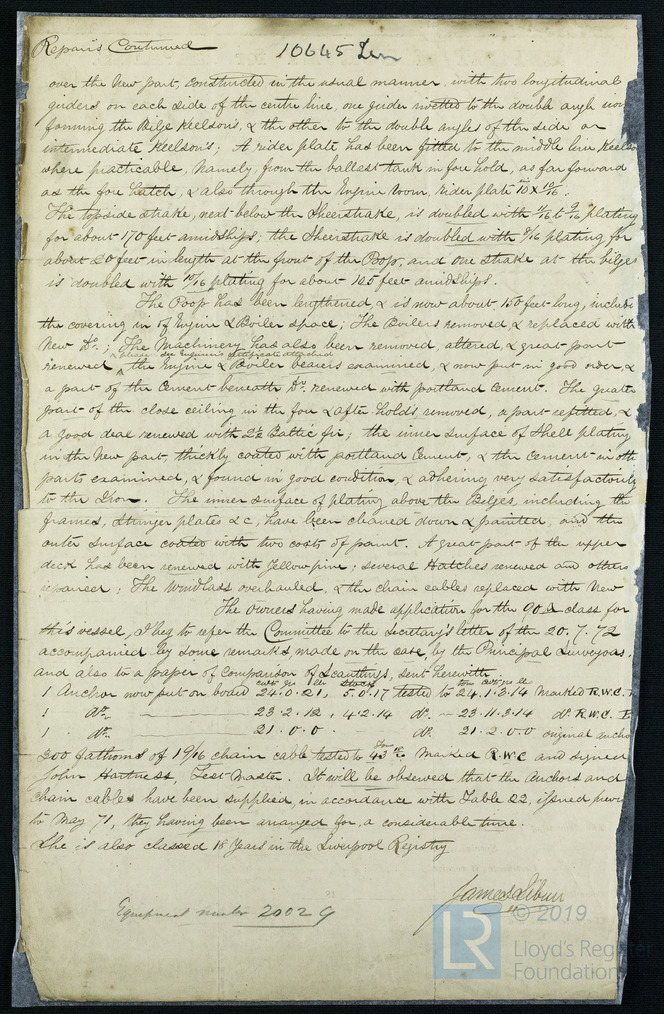 Repairs Continued 10645 Iron
over the New part, constructed in the usual manner with two longitudinal
girders on each side of the centre line, one girder rivetted to the double angle iron
forming the Bilge Keelsons, & the other to the double angles of the side or
intermediate Keelsons; A rider plate has been fitted to the middle line Keelson
where practicable, Namely, from the ballast tank in fore hold, as far forward
as the fore hatch, & also through the Engine room, rider plate 10 x 10/16.
The topside strake, next below the Sheerstrake, is doubled with 11/16 to 9/16 plating
for about 170 feet amidships; the Sheerstrake is doubled with 9/16 plating for
about 20 feet in length at the front of the Poop, and one strake at the bilges
is doubled with 10/16 plating for about 105 feet amidships.
The Poop has been lengthened, & is now about 150 feet long, includi
the covering in of Engine & Boiler space; The Boilers removed & replaced with
New Do.; The Machinery has also been removed, altered, & great part
please see Engineer's Certificate attached
renewed the Engine & Boiler bearers examined, & now put in good order &
a part of the Cement beneath Do. renewed with portland Cement. The greater
part of the close ceiling in the fore & after holds removed, a part refitted, &
a good deal renewed with 2½ Baltic fir; the inner surface of Shell plating
in the New part, thickly coated with portland Cement, & the Cement in oth
parts examined, & found in good condition, & adhering very satisfactorily
to the Iron. The inner surface of plating above the Bilges, including the
frames, Stringer plates &c, have been cleaned down & painted, and the
outer surface coated with two coats of paint. A great part of the upper
deck has been renewed with Yellow pine; several Hatches renewed and others
repaired; The Windlass overhauled, & the chain cables replaced with New
The Owners having made application for the 90 A class for
this vessel, I beg to refer the Committee to the Secretary's letter of the 20.7.72
accompanied by some remarks made on the case, by the Principal Surveyors,
and also to a paper of Comparison of Scantlings, sent herewith
cwts qrs lb Stock tons cwt qrs lb
1 Anchor now put on board 24.0.21, 5.0.17 tested to 24.1.3.14 Marked R.W.C.
1 Do. 23.2.12, 4.2.14 do. 23.11.3.14 do. R.W.C.
1 Do. 21.0.0 do. 21.2.0.0 original ancho
300 fathoms of 1 9/16 chain cable tested to 43 Marked R.W.C and signed
John Hartness, Test Master. It will be observed that the Anchors and
chain cables have been supplied, in accordance with Table 22, issued previ
to May 71, they having been arranged for, a considerable time.
She is also classed 18 Years in the Liverpool Registry
James
Equipment number 20029
LR © 2019
Lloyd's Register
Foundation